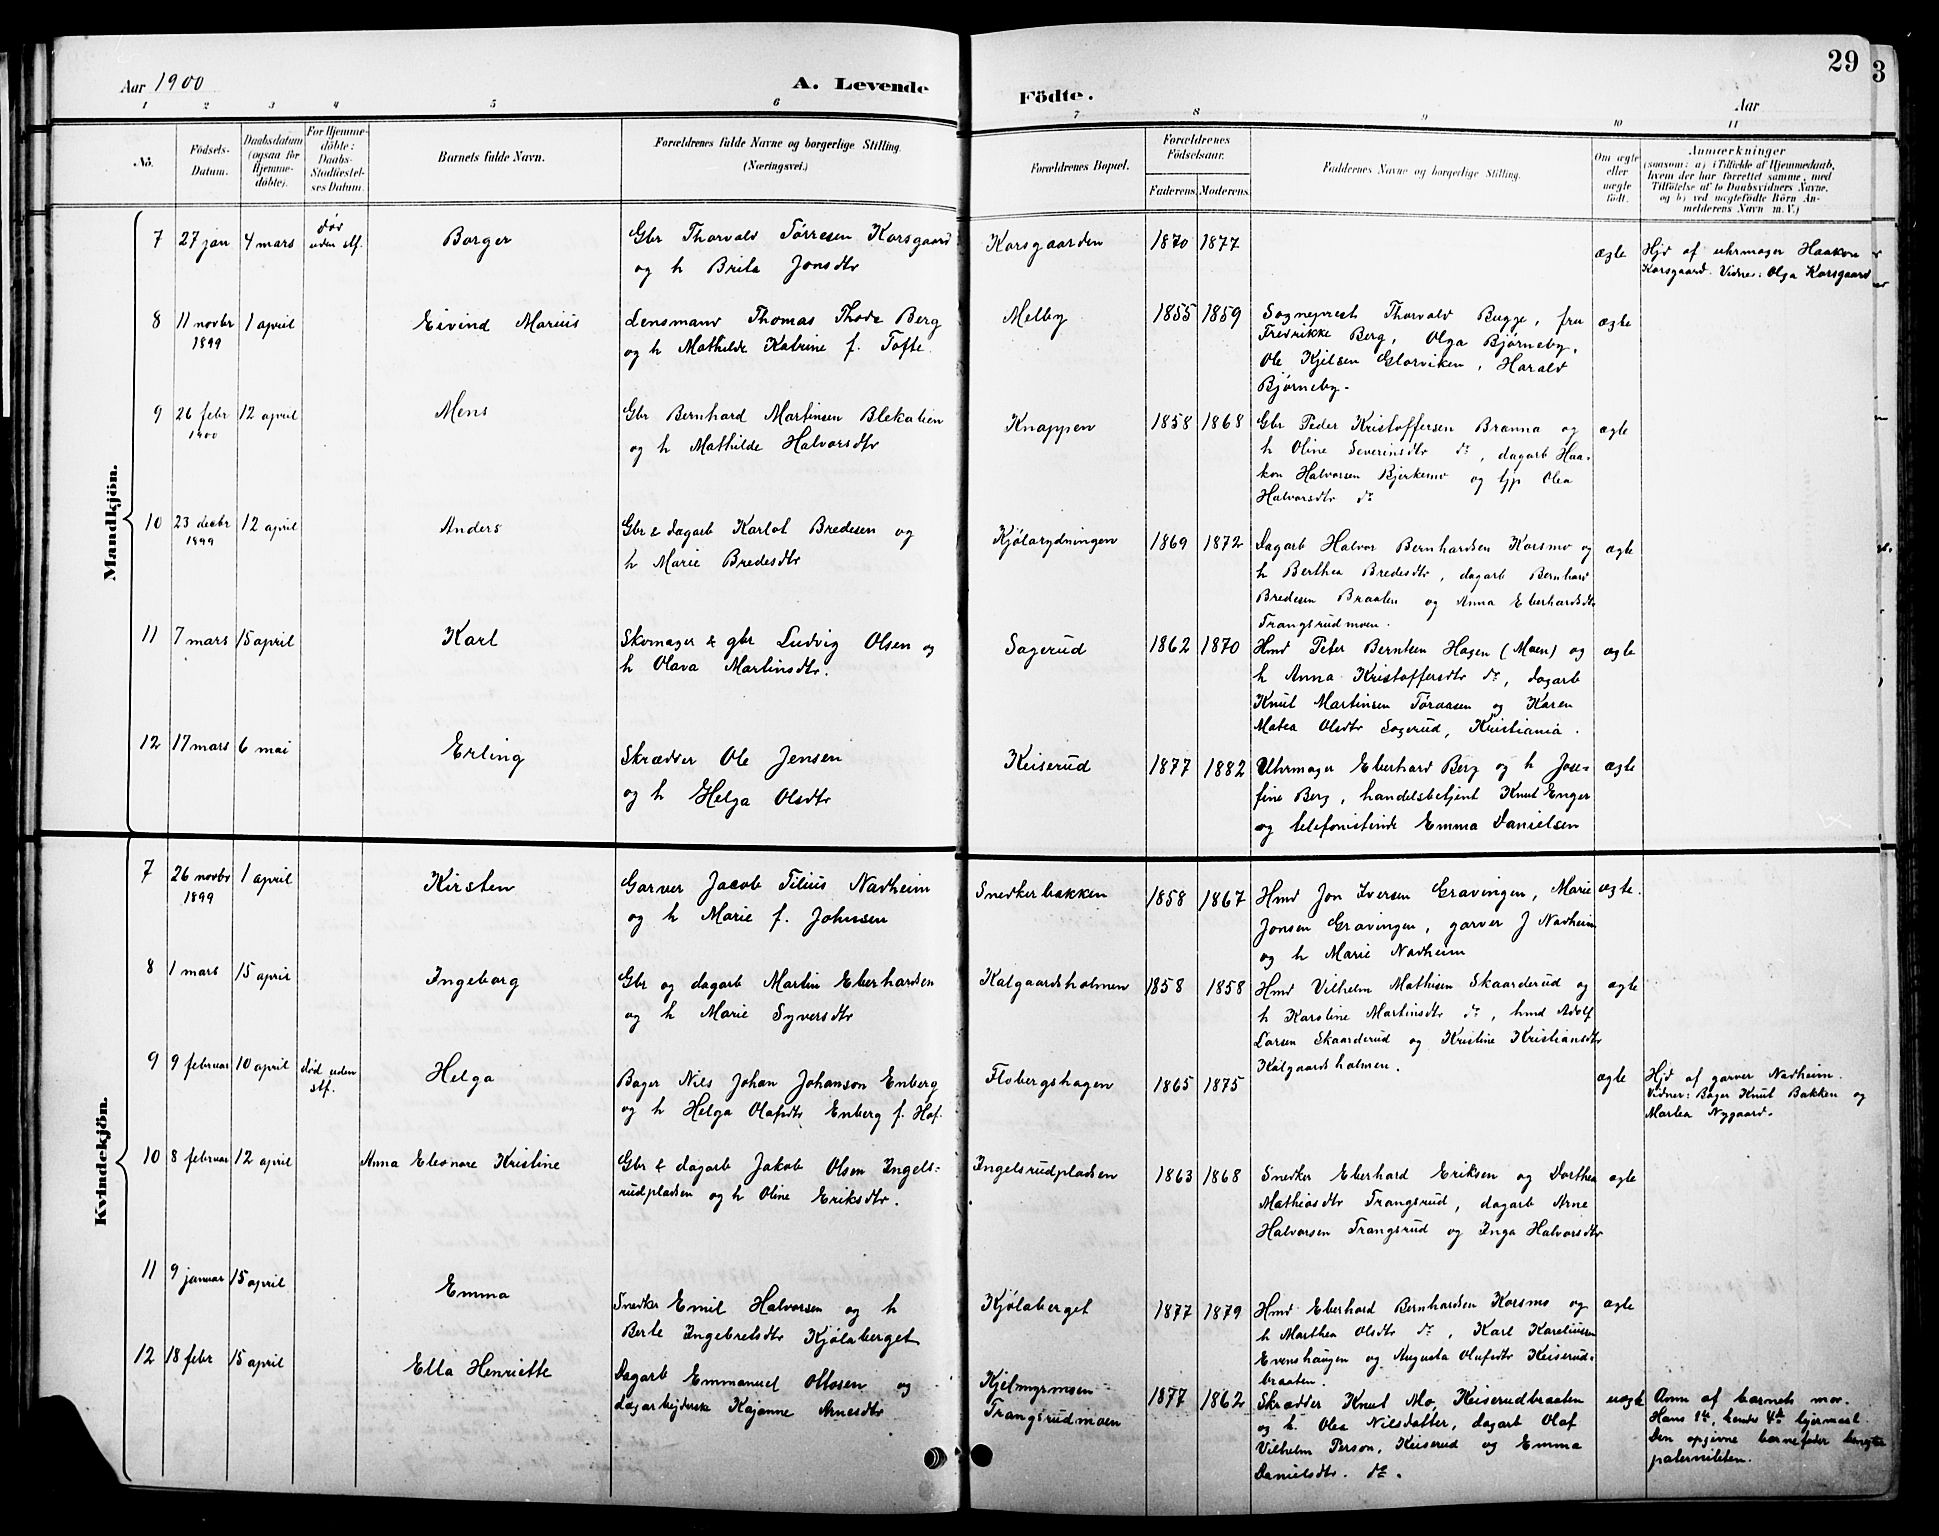 Aar 1900
A. Levende
Födte.
Aar
29
3
1 2 3 4 5 6 7 8 9 10 11
No.
Födsels-
Datum.
Daabsdatum
(ogsaa for
Hjemme-
döbte).
For Hjemme-
döbte:
Daabs-
Stadfæstel-
ses Datum.
Barnets fulde Navn.
Forældrenes fulde Navne og borgerlige Stilling.
(Næringsvei.)
Forældrenes Bopæl.
Forældrenes
Födselsaar.
Faderens. Moderens.
Faddernes Navne og borgerlige Stilling.
Om ægte
eller
uægte
födt.
Anmærkninger
(saasom: a) i Tilfælde af Hjemmedaab,
hvem der har forrettet samme, med
Tilföielse af to Daabsvidners Navne,
og b) ved uægtefödte Börn An-
melderens Navn m. V.)
Mandkjön.
7 27 jan 4 mars død Borger Gbr Thorvald Tørresen Korsgaard Korsgaarden 1870 1877 ægte Hjd af uhrmager Haakon
uden stf. og h Brita Jonsdtr Korsgaard. Vidner: Olga Korsgaard
8 11 novbr 1 april Eivind Marius Lensmand Thomas Thode Berg Melby 1855 1859 Sogneprest Thorvald Bugge, fru ægte
1899 og h Mathilde Katrine f. Tofte. Fredrikke Berg, Olga Bjørneby,
Ole Kjelsen Glorviken, Harald
Bjørneby.
9 26 febr 12 april Mens Gbr Bernhard Martinsen Blekalien Knappen 1858 1868 Gbr Peder Kristoffersen Branna og ægte
1900 og h Mathilde Halvorsdtr h Oline Severinsdtr do, dagarb Haa-
kon Halvorsen Bjerkemo og tjp Olea
Halvorsdtr do
10 23 decbr 12 april Anders Gbr & dagarb Karlot Bredesen og Kjølarydningen 1869 1872 Dagarb Halvor Bernhardsen Korsmo og ægte
1899 h Marie Bredesdtr h Berthea Bredesdtr, dagarb Bernhard
Bredesen Braaten og Anna Eberhardsdtr
Trangsrudmoen.
11 7 mars 15 april Karl Skomager & gbr Ludvig Olsen og Sagerud 1862 1870 Hmd Peter Berntsen Hagen (Moen) og ægte
h Olava Martinsdtr. h Anna Kristoffersdtr do, dagarb
Knut Martinsen Tøraasen og Karen
Matea Olsdtr Sagerud, Kristiania.
12 17 mars 6 mai Erling Skrædder Ole Jensen Keiserud 1877 1882 Uhrmager Eberhard Berg og h Jose- ægte
og h Helga Olsdtr fine Berg, handelsbetjent Knut Enger
og telefonistinde Emma Danielsen
Kvindekjön.
7 26 novbr 1 april Kirsten Garver Jacob Tilius Nadheim Snedkerbakken 1858 1867 Hmd Jon Iversen Gravingen, Marie ægte.
1899 og h Marie f. Johnsen Jonsen Gravingen, garver J Nadheim
og h Marie Nadheim
8 1 mars 15 april Ingeborg Gbr og dagarb Martin Eberhardsen Kalgaardsholmen 1858 1858 Hmd Vilhelm Mathisen Skaarderud og ægte
og h Marie Syversdtr h Karoline Martinsdtr do, hmd Adolf
Larsen Skaarderud og Kristine Kristiansdtr
Kalgaardsholmen.
9 9 februar 10 april død uden Helga Bager Nils Johan Johanson Enberg Flobergshagen 1865 1875 ægte Hjd af garver Nadheim.
stf. og h Helga Olafsdtr Enberg f. Hof. Vidner: Bager Knut Bakken og
Martea Nygaard.
10 8 februar 12 april Anna Eleonore Kristine Gbr & dagarb Jakob Olsen Ingels- Ingelsrudpladsen 1863 1868 Snedker Eberhard Eriksen og Dorthea ægte
rudpladsen og h Oline Eriksdtr. Mathiasdtr Trangsrud, dagarb Arne
Halvorsen Trangsrud og Inga Halvorsdtr
11 9 januar 15 april Emma Snedker Emil Halvorsen og h Kjølaberget 1877 1879 Hmd Eberhard Bernhardsen Korsmo og ægte
Berte Ingebretsdtr Kjølaberget h Marthea Olsdtr do, Karl Kareliussen
Evenshaugen og Augusta Olufsdtr Keiserud-
braaten.
12 18 febr 15 april Ella Henriette Dagarb Emmanuel Ottosen og Kjelmyrmoen 1877 1862 Skrædder Knut Mo, Keiserudbraaten uægte Anm af barnets mor.
dagarbejderske Kajanne Arnesdtr Trangsrudmoen og h Olea Nilsdatter, dagarb Olaf Hans 1te, hendes 4de leiermaal.
Vilhelm Person, Keiserud og Emma Den opgivne barnefader benegter
Danielsdtr. do. paterniteten.